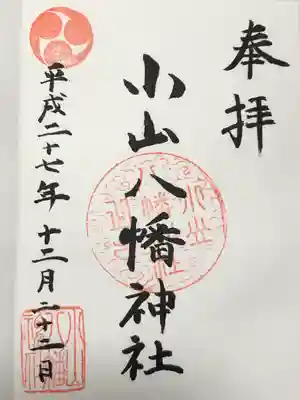 奉拝
小山八幡神社
平成二十七年十二月二十二日